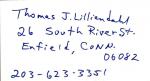 Thomas J. Lilliendahl
26 South River St.
Enfield, CONN.
06082
203-623-3351